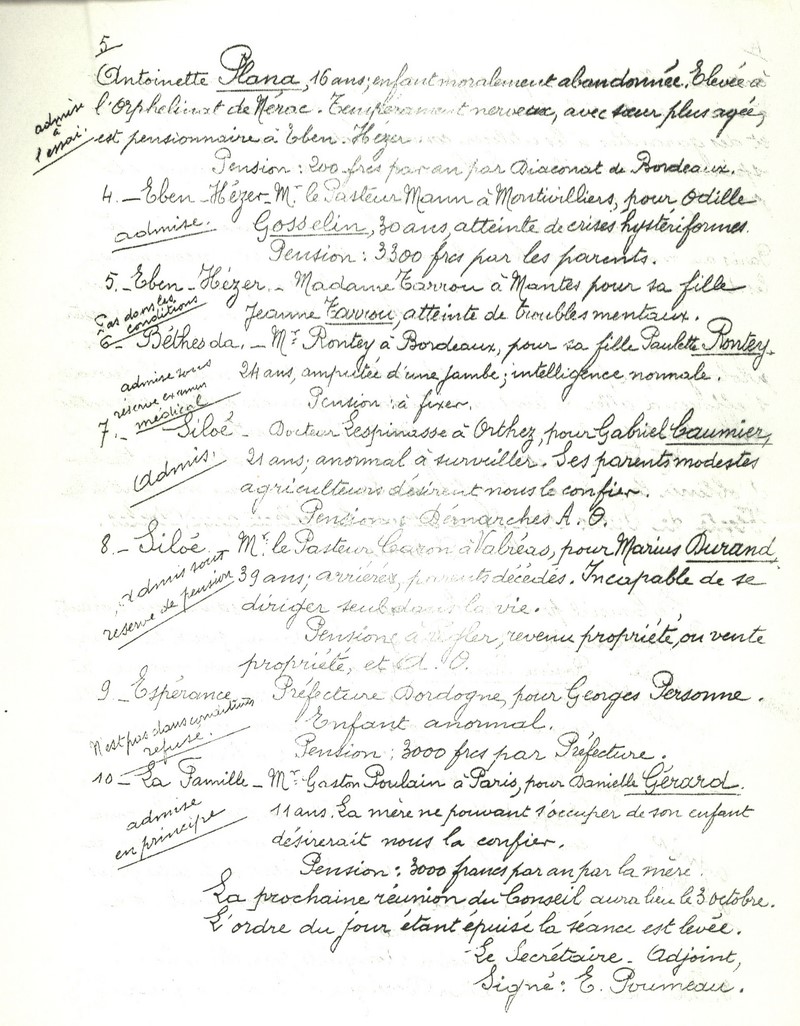 5
Antoinette Plana, 16 ans; enfant moralement abandonnée. Elevée à
l'Orphelinat de Nérac. Tempérament nerveux, avec sœur plus agée,
admise à l'essai.
est pensionnaire à Eben-Hézer.
Pension : 200 frcs par an par Diaconat de Bordeaux.
4. - Eben-Hézer - Mr. le Pasteur Mann à Montivilliers, pour Odille
admise.
Gosselin, 30 ans, atteinte de crises hystériformes.
Pension : 3300 frcs par les parents.
5. - Eben-Hézer. - Madame Tarrou à Mantes pour sa fille
Pas dans les conditions
Jeanne Tarrou, atteinte de troubles mentaux.
6 - Béthesda. - Mr. Rontey à Bordeaux, pour sa fille Paulette Rontey.
admise sous réserve examen médical
24 ans, amputée d'une jambe; intelligence normale.
Pension : à fixer.
7. - Siloé - Docteur Lespinasse à Orthez, pour Gabriel Caumier,
Admis.
21 ans; anormal à surveiller. Ses parents modestes
agriculteurs désirent nous le confier.
Pension : Démarches A. O.
8. - Siloé. Mr. le Pasteur Caron à Valréas, pour Marius Durand,
Admis sous réserve de pension
39 ans; arriéré, parents décédés. Incapable de se
diriger seul dans la vie.
Pension à régler, revenu propriété, ou vente
propriété, et A. O.
9. - Espérance Préfecture Dordogne, pour Georges Personne.
N'est pas dans conditions refusé.
Enfant anormal.
Pension : 3000 frcs par Préfecture.
10 - La Famille - Mr. Gaston Poulain à Paris, pour Danielle Gérard.
admise en principe
11 ans. La mère ne pouvant s'occuper de son enfant
désirerait nous la confier.
Pension : 3000 francs par an par la mère.
La prochaine réunion du Conseil aura lieu le 3 octobre.
L'ordre du jour étant épuisé la séance est levée.
Le Secrétaire - Adjoint,
Signé : E. Poumeau.